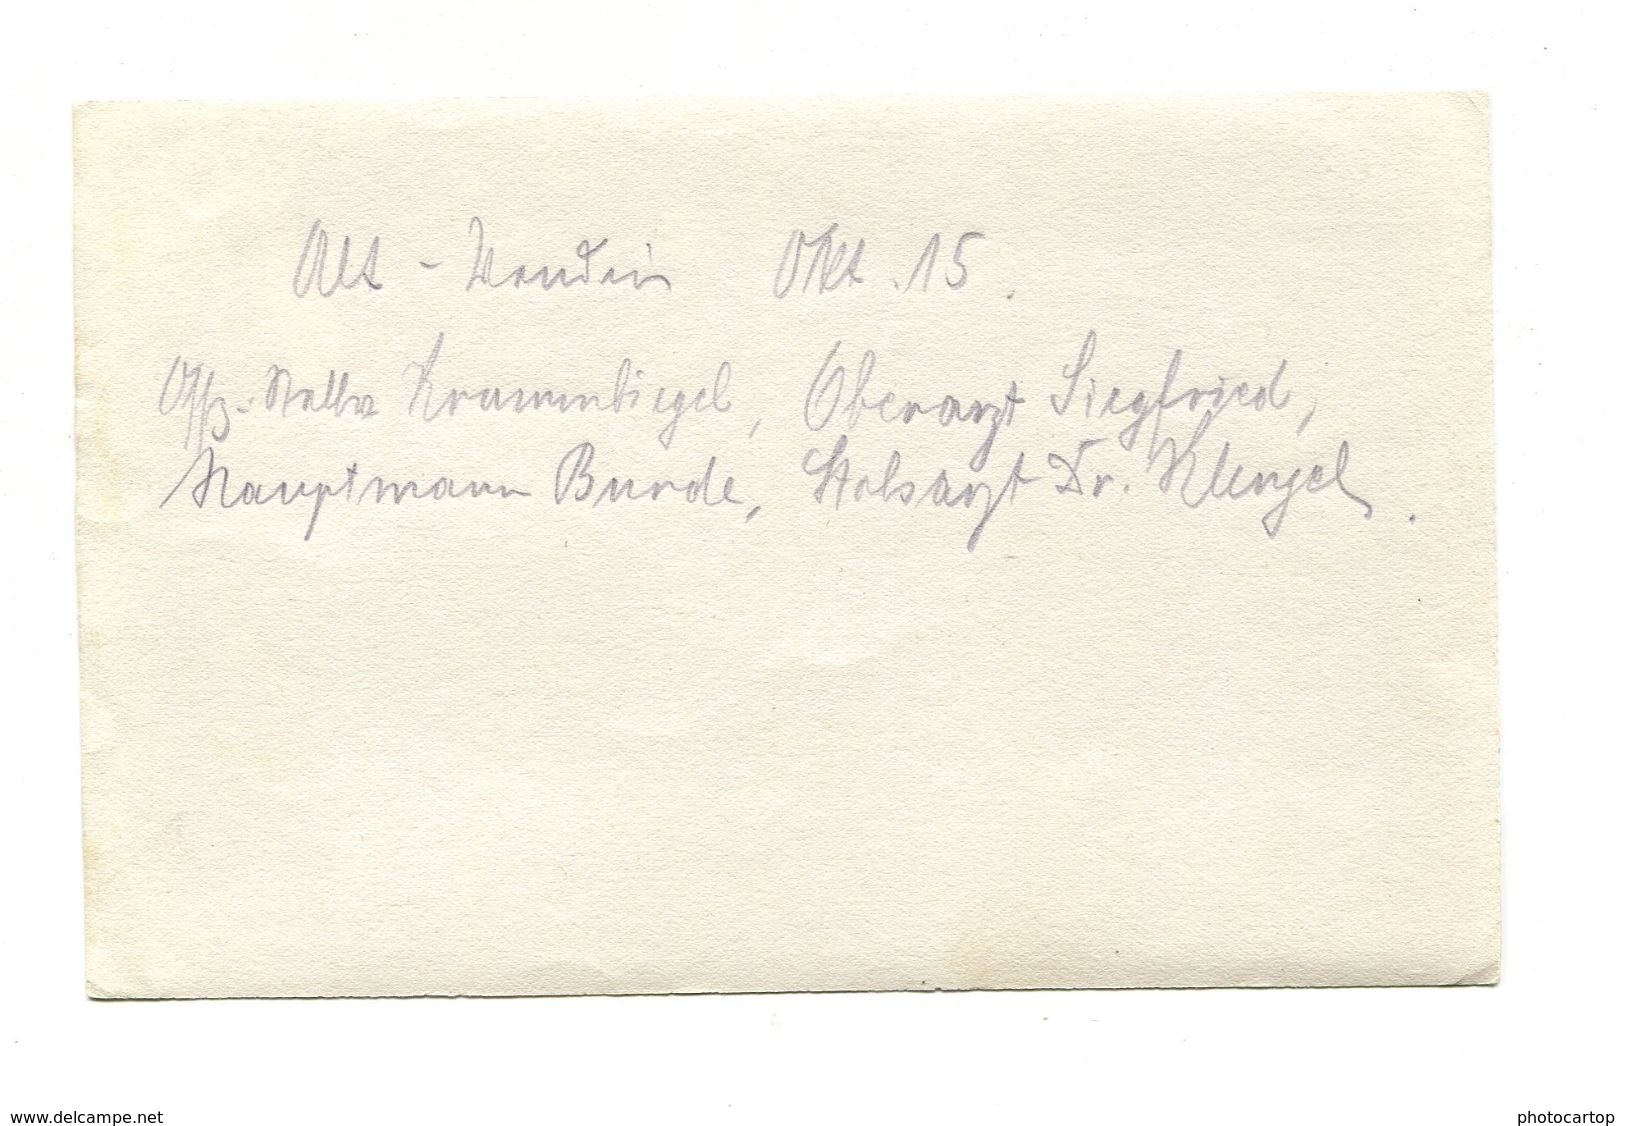 Alt - Wendin Okt. 15.
Offz.-Stellv Krummbiegel, Oberarzt Siegfried,
Hauptmann Burde, Stabsarzt Dr. Klengel.
www.delcampe.net
photocartop